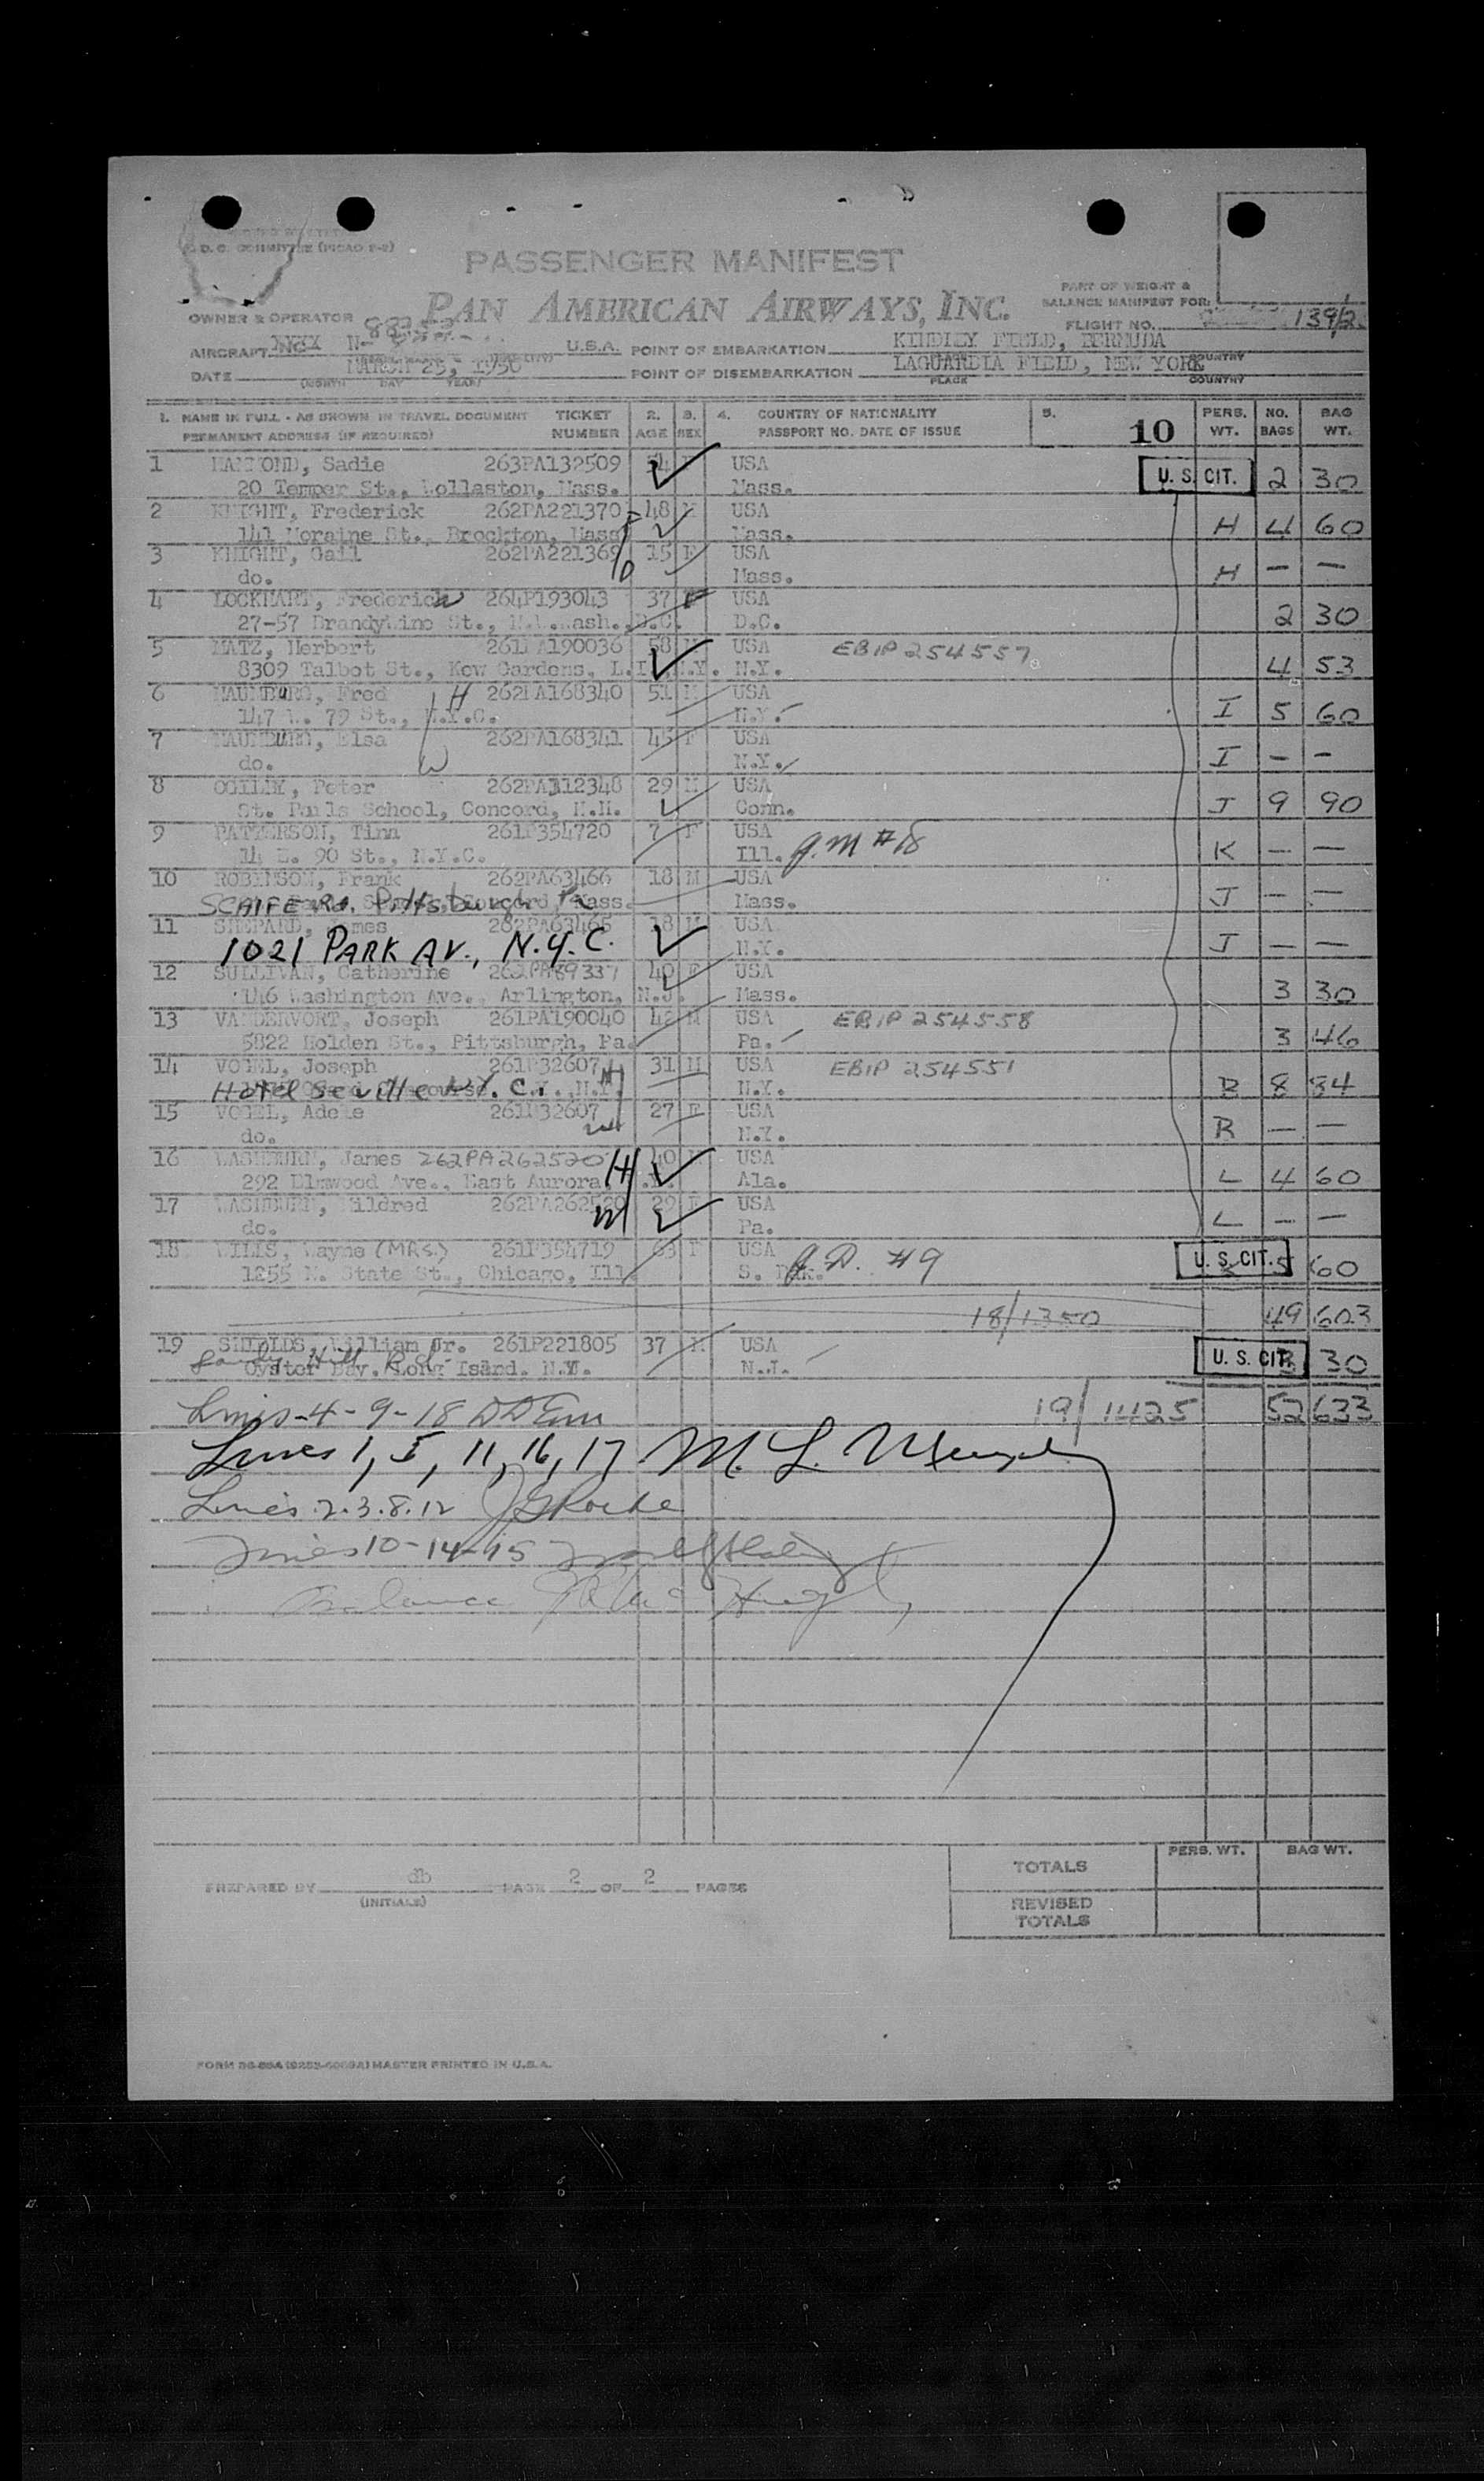 D. C. COMMITTEE (PICAO P-2)
PASSENGER MANIFEST
PAN AMERICAN AIRWAYS, INC.
PART OF WEIGHT &
BALANCE MANIFEST FOR:
OWNER & OPERATOR
FLIGHT NO. 139/2
AIRCRAFT N- U.S.A. POINT OF EMBARKATION KINDLEY FIELD, BERMUDA
DATE MARCH 25, 1950 POINT OF DISEMBARKATION LAGUARDIA FIELD, NEW YORK
(MONTH DAY YEAR) PLACE COUNTRY
1. NAME IN FULL - AS SHOWN IN TRAVEL DOCUMENT TICKET 2. 3. 4. COUNTRY OF NATIONALITY 5. PERS. NO. BAG
PERMANENT ADDRESS (IF REQUIRED) NUMBER AGE SEX PASSPORT NO. DATE OF ISSUE 10 WT. BAGS WT.
1 HAMMOND, Sadie 263PA132509 54 F USA
20 Temper St., Wollaston, Mass. Mass. U. S. CIT. 2 30
2 KNIGHT, Frederick 262PA221370 48 M USA
141 Moraine St., Brockton, Mass. Mass. H 4 60
3 KNIGHT, Gail 262PA221369 15 F USA
do. Mass. H — —
4 LOCKHART, Frederick 264P193043 37 USA
27-57 Brandywine St., N.W. Wash. D.C. D.C. 2 30
5 MATZ, Herbert 261PA190036 58 M USA EBIP 254557
8309 Talbot St., Kew Gardens, L.I., N.Y. N.Y. 4 53
6 NAUMBURG, Fred H 262PA168340 51 M USA
147 W. 79 St., N.Y.C. N.Y. I 5 60
7 NAUMBURG, Elsa 262PA168341 45 F USA
do. W N.Y. I — —
8 OGILBY, Peter 262PA112348 29 M USA
St. Pauls School, Concord, N.H. Conn. J 9 90
9 PATTERSON, Tina 261P354720 7 F USA
14 E. 90 St., N.Y.C. Ill. G.M #18 K — —
10 ROBINSON, Frank 262PA63466 18 M USA
SCAIFE Rd. Pittsburgh Pa Mass. J — —
11 SHEPARD, James 262PA63465 18 M USA
1021 PARK AV., N.Y.C. N.Y. J — —
12 SULLIVAN, Catherine 262PA89337 40 F USA
146 Washington Ave., Arlington, N.J. Mass. 3 30
13 VANDERVORT, Joseph 261PA190040 42 M USA EBIP 254558
5822 Holden St., Pittsburgh, Pa. Pa. 3 46
14 VOGEL, Joseph 261P32607 31 M USA EBIP 254551
Hotel Seville N.Y.C. N.Y. R 8 84
15 VOGEL, Adele 261P32607 27 F USA
do. N.Y. R — —
16 WASHBURN, James 262PA262520 H 40 M USA
292 Elmwood Ave., East Aurora, Ala. L 4 60
17 WASHBURN, Mildred 262PA262520 29 F USA
do. W Pa. L — —
18 WILLS, Wayne (MRS.) 261P354719 63 F USA
1255 N. State St., Chicago, Ill. S. Dak. G.D. #9 U. S. CIT. 5 60
18/1350 49 603
19 SHIELDS, William Jr. 261P221805 37 M USA
Sandy Hill Rd. Oyster Bay, Long Island. N.Y. N.J. U. S. CIT. 3 30
Lines-4-9-18 19/1425 52 633
Lines 1, 5, 11, 16, 17 M. L.
Lines 2.3.8.12 J G Roche
Lines 10-14-15
Balance
PREPARED BY db PAGE 2 OF 2 PAGES
(INITIALS)
PERS. WT. BAG WT.
TOTALS
REVISED
TOTALS
MASTER PRINTED IN U.S.A.